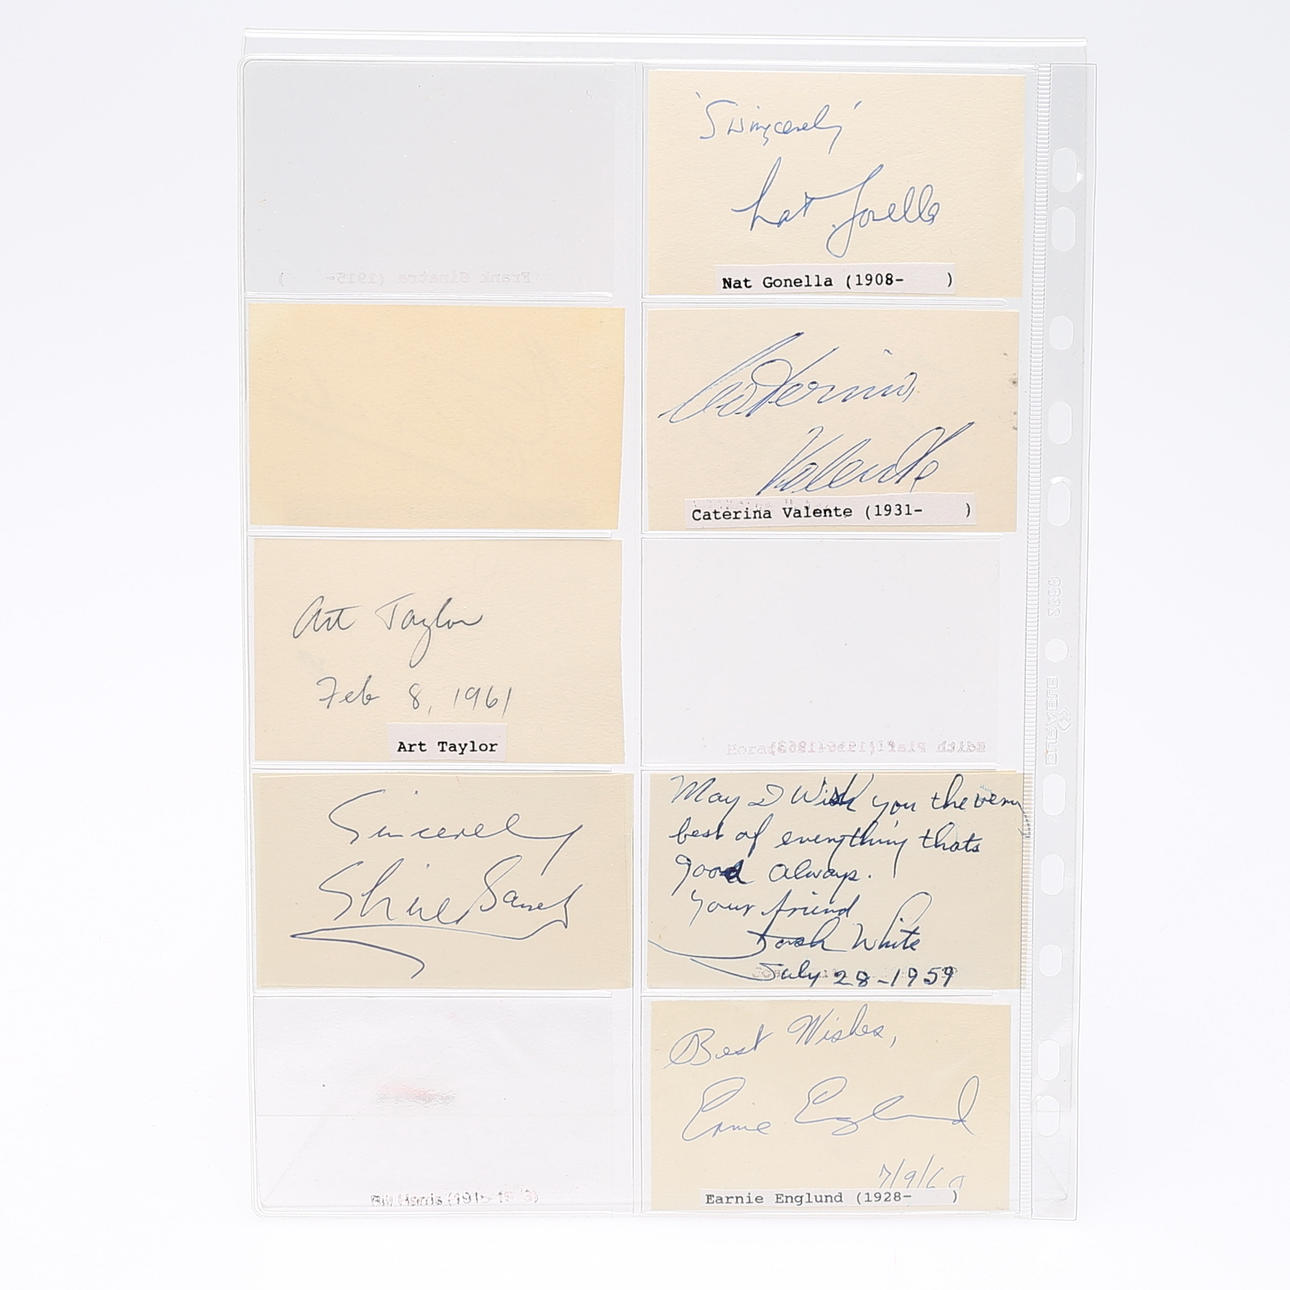 'Swingcerely'
Nat Gonella
Nat Gonella (1908-    )
Frank Sinatra (1915-    )
Caterina
Valente
Caterina Valente (1931-    )
Art Taylor
Feb 8, 1961
Art Taylor
Edith Piaf
Sincerely
May I Wish you the very
best of everything thats
good always.
your friend
Josh White
July 28-1959
Best Wishes,
Ernie Englund
Earnie Englund (1928-    )